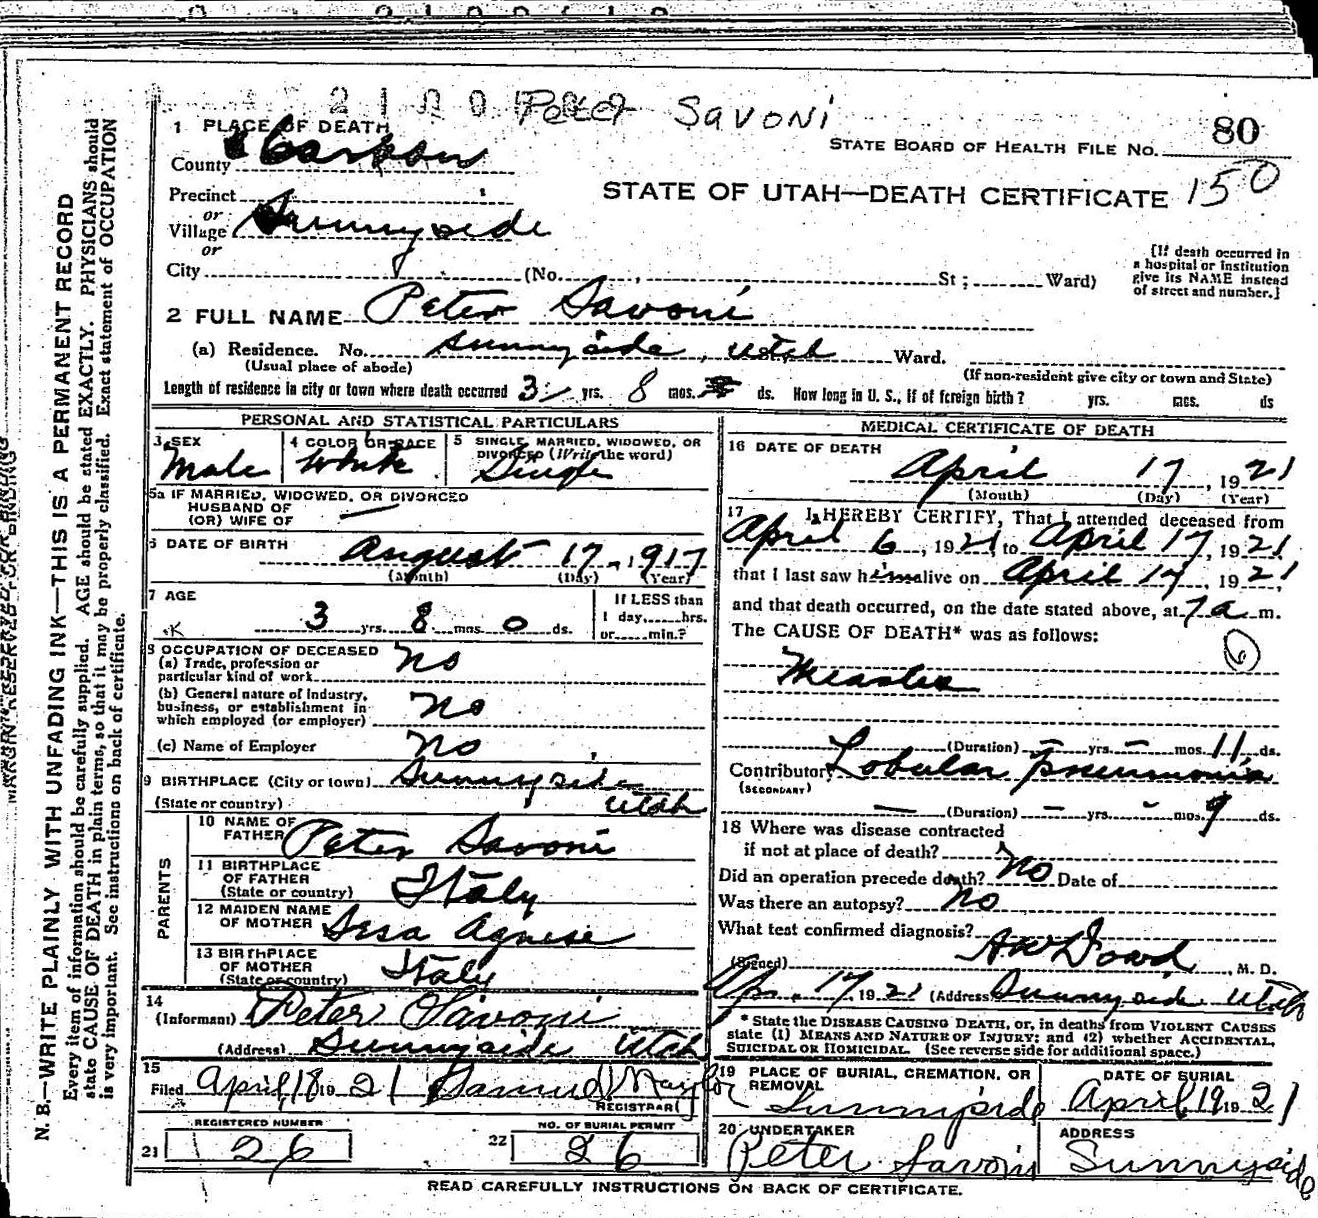 Peter Savoni
1 PLACE OF DEATH
STATE BOARD OF HEALTH FILE No. 80
County Carbon
STATE OF UTAH—DEATH CERTIFICATE 150
Precinct
or
Village Sunnyside
or
City (No. St; Ward)
[If death occurred in
a hospital or institution
give its NAME instead
of street and number.]
2 FULL NAME Peter Savoni
(a) Residence. No. Sunnyside, Utah Ward.
(Usual place of abode)
(If non-resident give city or town and State)
Length of residence in city or town where death occurred 3 yrs. 8 mos. ds. How long in U. S., if of foreign birth? yrs. mos. ds
PERSONAL AND STATISTICAL PARTICULARS
3 SEX
Male
4 COLOR OR RACE
White
5 SINGLE, MARRIED, WIDOWED, OR
DIVORCED (Write the word)
Single
5a IF MARRIED, WIDOWED, OR DIVORCED
HUSBAND OF
(OR) WIFE OF
6 DATE OF BIRTH August 17, 1917
(Month) (Day) (Year)
7 AGE
3 yrs. 8 mos. 0 ds.
If LESS than
1 day, hrs.
or min.?
8 OCCUPATION OF DECEASED
(a) Trade, profession or
particular kind of work no
(b) General nature of industry,
business, or establishment in
which employed (or employer) no
(c) Name of Employer no
9 BIRTHPLACE (City or town) Sunnyside
(State or country) Utah
PARENTS
10 NAME OF
FATHER Peter Savoni
11 BIRTHPLACE
OF FATHER
(State or country) Italy
12 MAIDEN NAME
OF MOTHER Agnese
13 BIRTHPLACE
OF MOTHER
(State or country) Italy
14
(Informant) Peter Savoni
(Address) Sunnyside Utah
15
Filed April 18 1921 Samuel Naylor
REGISTRAR
REGISTERED NUMBER
21 26
NO. OF BURIAL PERMIT
22 26
MEDICAL CERTIFICATE OF DEATH
16 DATE OF DEATH
April 17, 1921
(Month) (Day) (Year)
17 I HEREBY CERTIFY, That I attended deceased from
April 6, 1921 to April 17, 1921
that I last saw him alive on April 17, 1921
and that death occurred, on the date stated above, at 7 a m.
The CAUSE OF DEATH* was as follows:
Measles
(Duration) – yrs. – mos. 11 ds.
Contributory Lobular pneumonia
(SECONDARY)
(Duration) – yrs. – mos. 9 ds.
18 Where was disease contracted
if not at place of death?
Did an operation precede death? no Date of
Was there an autopsy? no
What test confirmed diagnosis?
(Signed) A W Dowd, M. D.
Ap. 17, 1921 (Address) Sunnyside Utah
* State the DISEASE CAUSING DEATH, or, in deaths from VIOLENT CAUSES
state (1) MEANS AND NATURE OF INJURY; and (2) whether ACCIDENTAL,
SUICIDAL OR HOMICIDAL. (See reverse side for additional space.)
19 PLACE OF BURIAL, CREMATION, OR
REMOVAL
Sunnyside
DATE OF BURIAL
April 19 1921
20 UNDERTAKER
Peter Savoni
ADDRESS
Sunnyside
READ CAREFULLY INSTRUCTIONS ON BACK OF CERTIFICATE.
MARGIN RESERVED FOR BINDING
N. B.—WRITE PLAINLY WITH UNFADING INK—THIS IS A PERMANENT RECORD
Every item of information should be carefully supplied. AGE should be stated EXACTLY. PHYSICIANS should
state CAUSE OF DEATH in plain terms, so that it may be properly classified. Exact statement of OCCUPATION
is very important. See instructions on back of certificate.